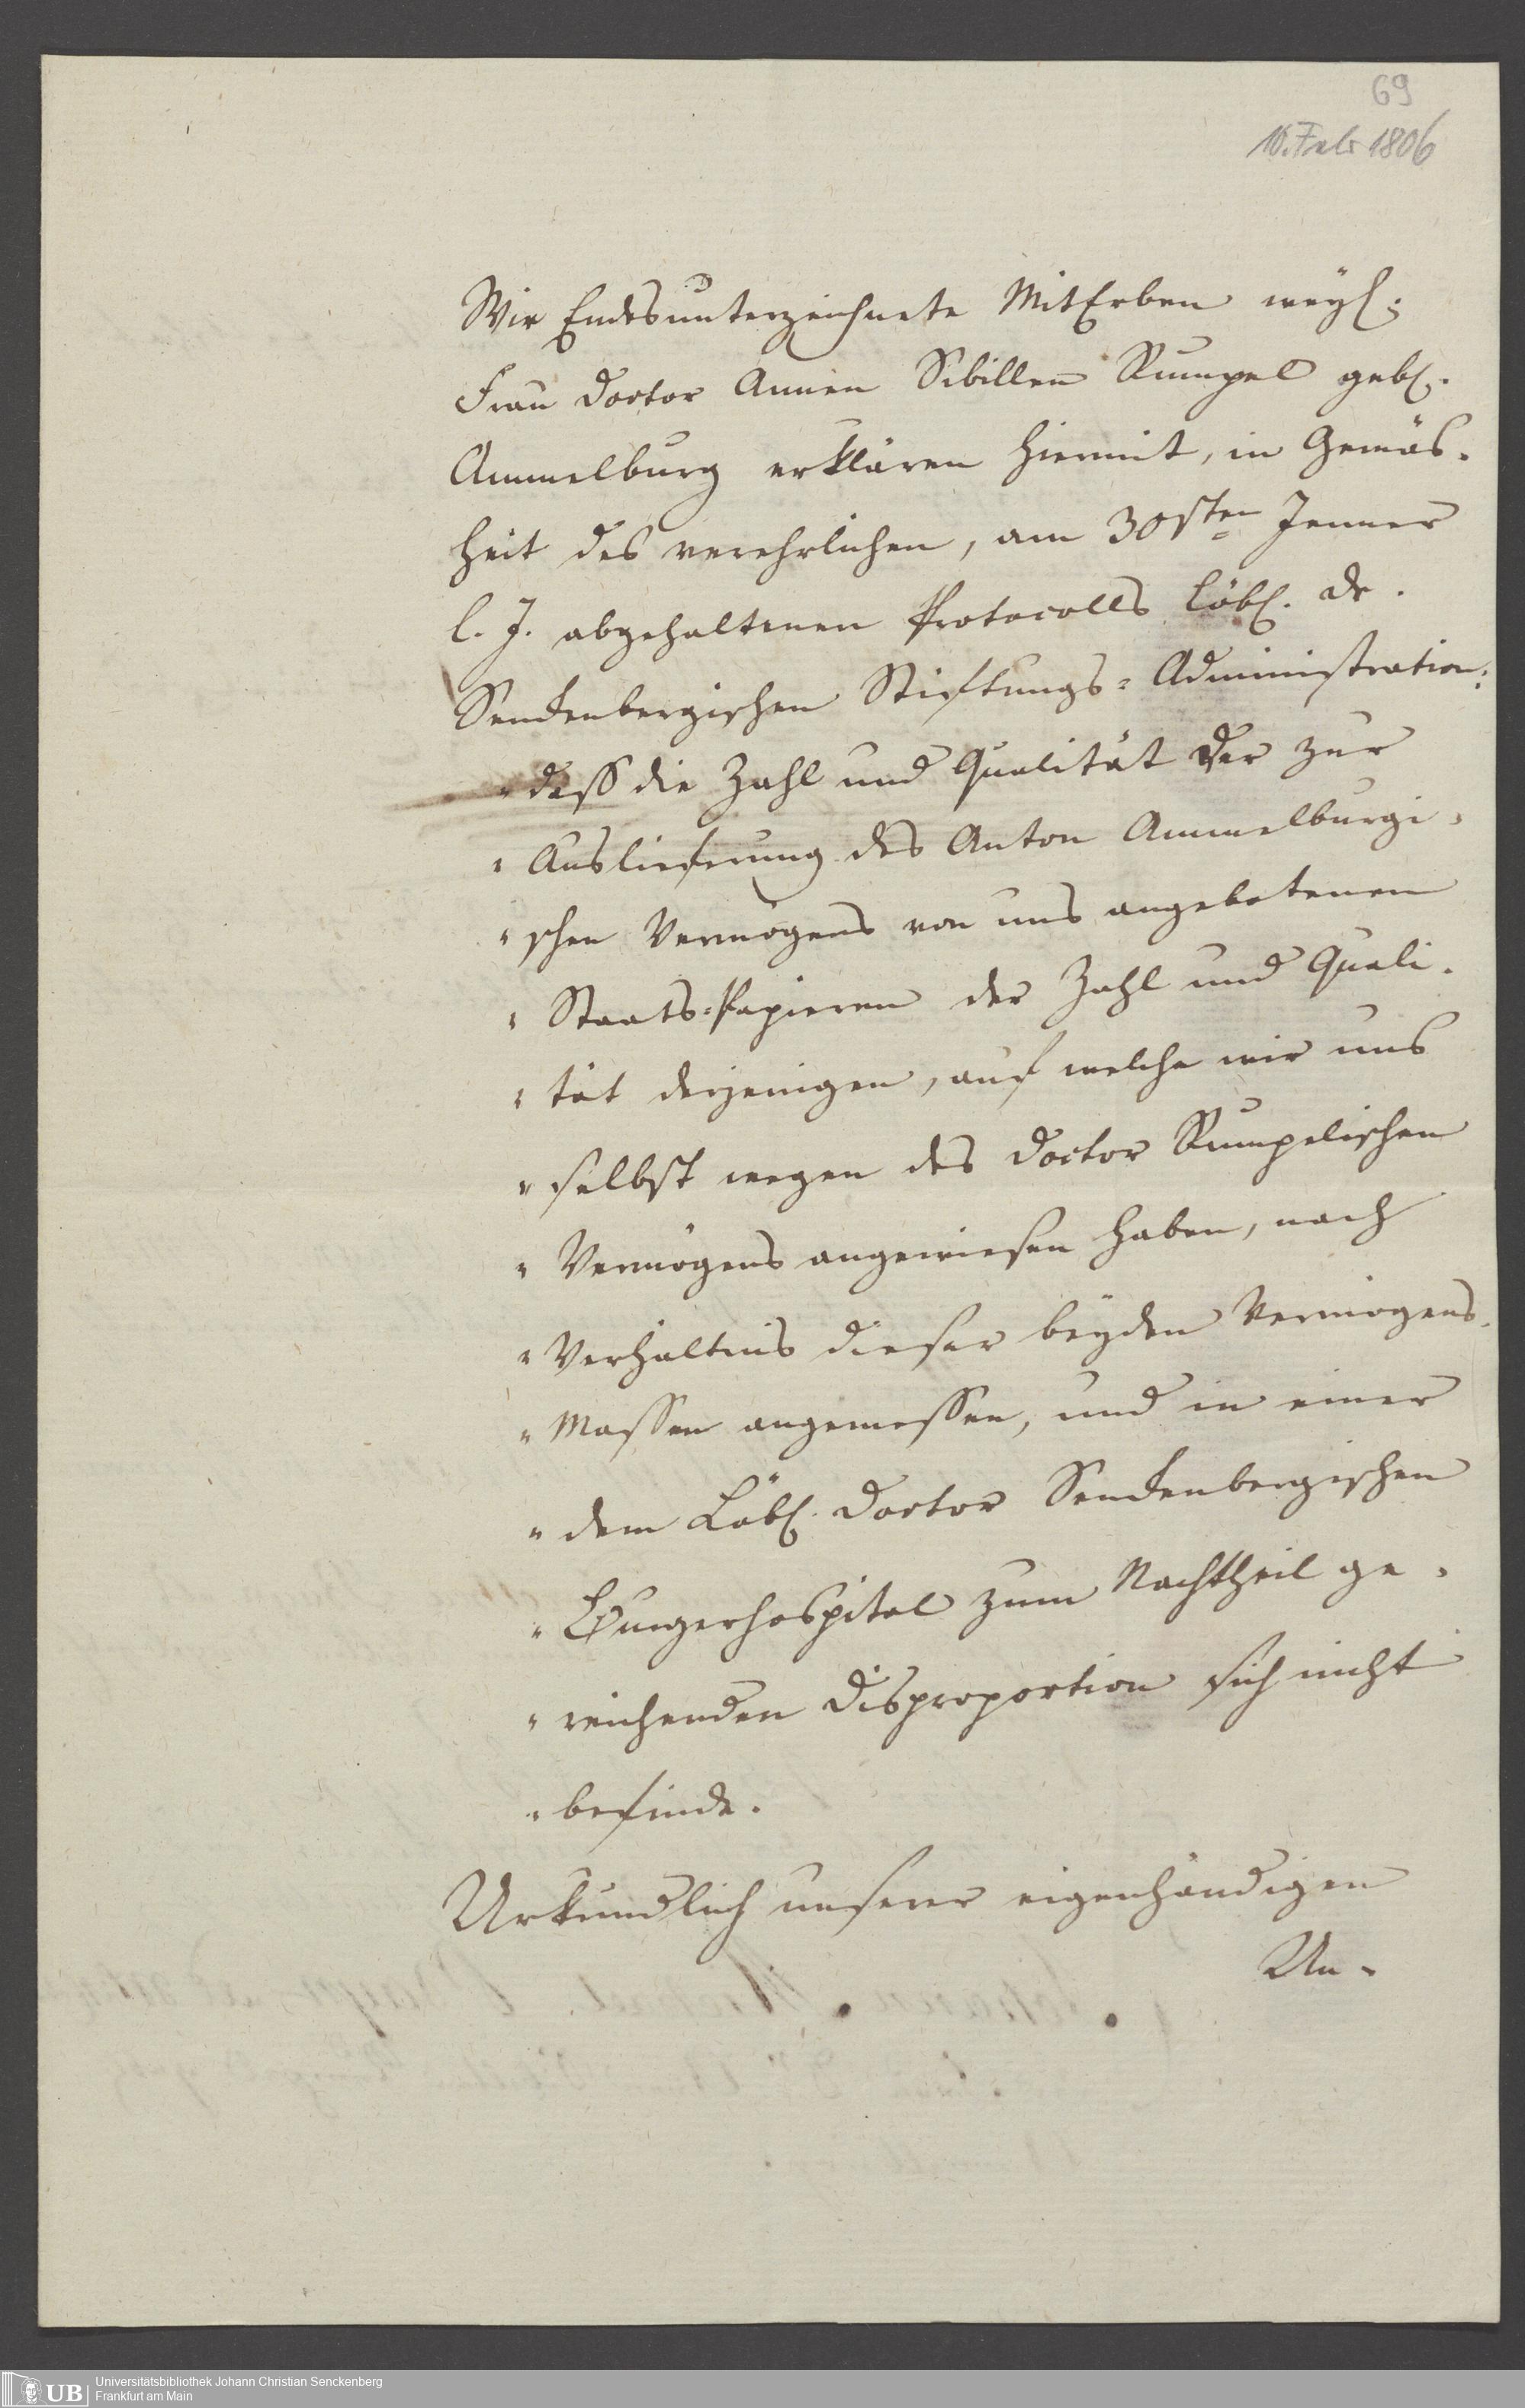 69
10. Febr 1806
Wir Endesunterzeichnete MitErben weyl:
Frau Doctor Annen Sibillen Rumpel gebl.
Ammelburg erklären hiermit, in Gemäs-
heit des verehrlichen, am 30sten Jenner
l. J. abgehaltenen Protocolls löbl. Dr.
Senckenbergischen Stiftungs-Administration:
" dass die Zahl und Qualität der zur
" Auslieferung des Anton Ammelburgi-
" schen Vermögens von uns angebotenen
" Staats-Papieren der Zahl und Quali-
" tät derjenigen, auf welche wir uns
" selbst wegen des Doctor Rumpelischen
" Vermögens angewiesen haben, nach
" Verhältnis dieser beyden Vermögens-
" Massen angemessen, und in einer
" dem Löbl. Doctor Senckenbergischen
" Burgerhospital zum Nachtheil ge-
" reichenden Disproportion sich nicht
" befinde.
Urkundlich unserer eigenhändigen
Un-
UB Universitätsbibliothek Johann Christian Senckenberg
Frankfurt am Main